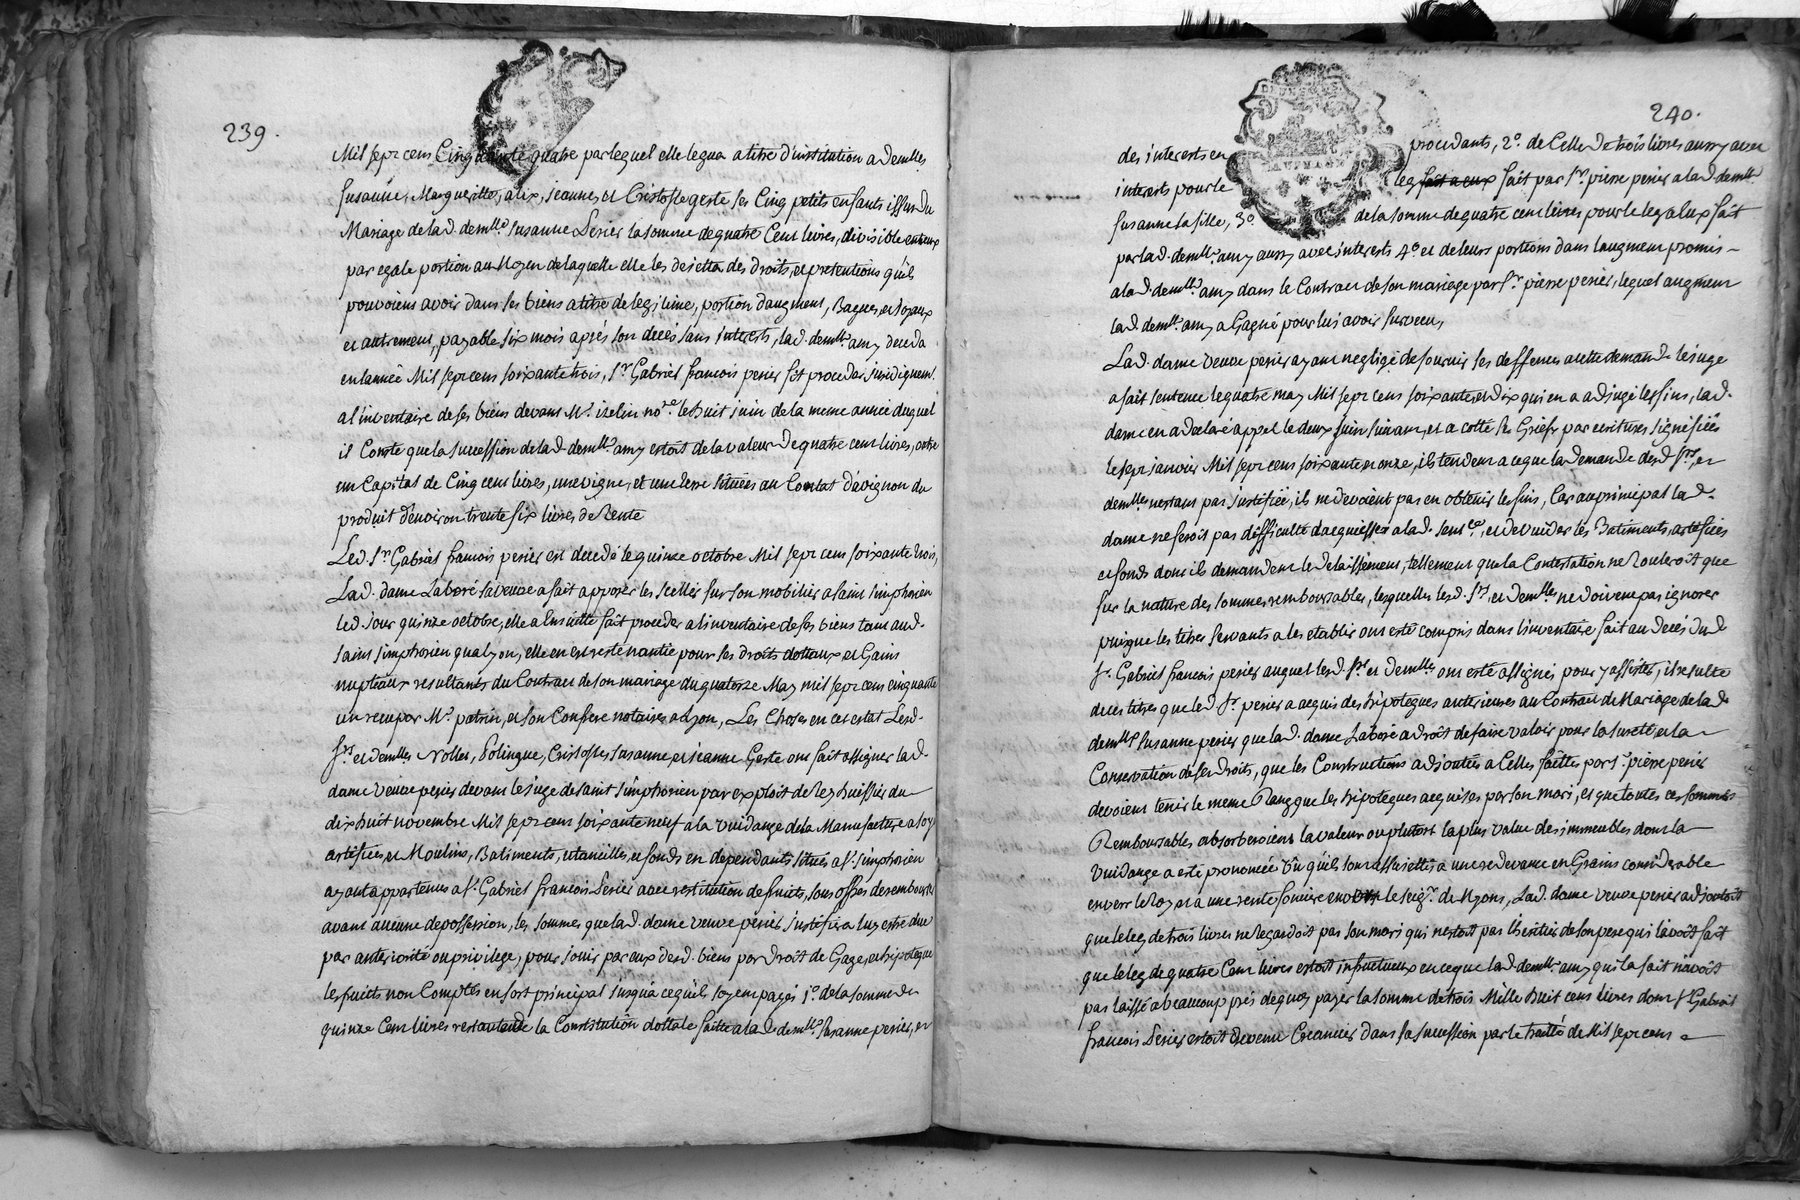 239.
Mil sept cens Cinquante quatre par lequel elle legua a titre d'institution a demlles
Susanne, Margueritte, alix, jeanne, et Cristofle geste ses Cinq petits enfants issus du
Mariage de lad. demlle Susanne Perier la somme de quatre Cent livres, divisible entreux
par egale portion au Moyen de laquelle elle les desjetta des droits, et pretentions qu'ils
pouvoient avoir dans ses biens a titre de legitime, portion d'augment, Bagues et Joyaux
et autrement, payable six mois aprés son decés sans interests, lad. demlle amy deceda
en lannée Mil sept cens soixante trois, Sr Gabriel francois perier fit proceder juridiquemt
a l'inventaire de ses biens devant Me. izelin nore. le huit juin de la meme année duquel
il Conste que la succession de lad. demlle amy estoit de la valeur de quatre cent livres, outre
un Capital de Cinq cent livres, une vigne, et une terre situées au Comtat d'avignon du
produit d'environ trente six livres de Rente
Led. Sr Gabriel francois perier est decedé le quinze octobre Mil sept cens soixante trois,
Lad. dame Laboré sa veuve a fait apposer les scellés sur son mobilier a saint simphorien
led. jour quinze octobre, elle a Ensuitte fait proceder a l'inventaire de ses biens tant aud.
saint simphorien qua lyon, elle en est restée nantie pour ses droits dottaux et Gains
nuptiaux resultants du Contract de son mariage du quatorze May mil sept cens cinquante
un receu par Me. patrin, et son Confrere notaires a Lyon, Les Choses en cet estat Lesd.
srs et demlles Nollet, Polingue, Cristofle, Susanne, et jeanne Geste ont fait assigner lad.
dame veuve perier devant le juge de saint simphorien par exploit de Rey huissier du
dix huit novembre Mil sept cens soixante neuf a la Vuidange de la Manufacture a soy
artifices et Moulins, Batiments, utancilles, et fonds en dependants situés a St. simphorien
ayant appartenus a Sr. Gabriel francois Perier avec restitution de fruits, sous offres de rembourser
avant aucune depossession, les sommes que lad. dame veuve perier justifiera luy estre due
par anteriorité ou privilege, pour jouir par eux desd. biens par droit de Gage, et hipoteque
les fruits non Comptés en sort principal jusqua ce qu'ils soyent payés 1o. de la somme de
quinze Cent livres restante de la Constitution dottale faitte a lad. demlle Susanne perier, et
240.
des interests en procedants, 2o. de Celle de trois livres aussy avec
interests pour le leg fait a eux fait par Sr. pierre perier a lad. demlle
Susanne sa fille, 3o de la somme de quatre cent livres pour le leg a lux fait
par lad. demlle amy aussy avec interests 4o et de leurs portions dans laugment promis
a lad. demlle amy dans le Contract de son mariage par Sr. pierre perier, lequel augment
lad. demlle amy a Gagné pour lui avoir survecu,
Lad. dame veuve perier ayant negligé de fournir ses deffences a cette demande le juge
a fait sentence le quatre may Mil sept cens soixante et dix qui en a adjugé les fins, lad.
dame en a declaré appel le deux juin suivant, et a cotté ses Griefs par ecritures signifiées
le sept janvier Mil sept cens soixante et onze, ils tendent a ce que la demande desd. Srs, et
demlles n'estant pas justifiée, ils ne devoient pas en obtenir les fins, Car au principal lad.
dame ne feroit pas difficulté dacquiesser a lad. sentce, et de vuider les Batiments, artifices
et fonds dont ils demandent le delaissement, tellement que la Contestation ne Rouleroit que
sur la nature des sommes remboursables, lesquelles lesd. Srs, et demlles ne doivent pas ignorer
puisque les titres servants a les etablir ont esté compris dans l'inventaire fait au decés dud.
Sr. Gabriel francois perier auquel lesd. Srs et demlles ont esté assignés pour y assister, il resulte
de ces titres que led. Sr. perier a acquis des hipoteques anterieures au Contract de Mariage de lad.
demlle Susanne perier que lad. dame Laboré a droit de faire valoir pour la sureté et la
Conservation de ses droits, que les Constructions adjoutées a Celles faittes par Sr. pierre perier
devoient tenir le meme Rang que les hipoteques acquises par son mari, et que toutes ces sommes
Remboursables, absorberoient la valeur ou plutost la plus value des immeubles dont la
Vuidange a esté prononcée Vû qu'ils sont assujettis a une redevance en Grains considerable
envers le Roy et a une rente fonciere envers le seigr. de Nyons, Lad. dame veuve perier adjoutoit
que le leg de trois livres ne regardoit pas son mari qui n'estoit pas l'heritier de son pere qui l'avoit fait
que le leg de quatre Cent livres estoit infructueux en ce que lad. demlle amy qui l'a fait n'avoit
pas laissé a beaucoup prés de quoy payer la somme de trois Mille huit cens livres dont Sr Gabriel
francois Perier estoit devenu Creancier dans sa succession par le traitté de Mil sept cens